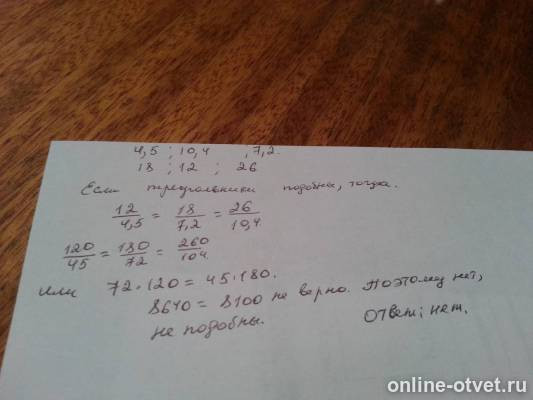 4,5 ; 10,4 , 7,2.
18 ; 12 ; 26
Если треугольники подобны, тогда.
12/4,5 = 18/7,2 = 26/10,4
120/45 = 180/72 = 260/104
или 72·120 = 45·180.
8640 = 8100 не верно. Поэтому нет,
не подобны.
Ответ: нет.
online-otvet.ru